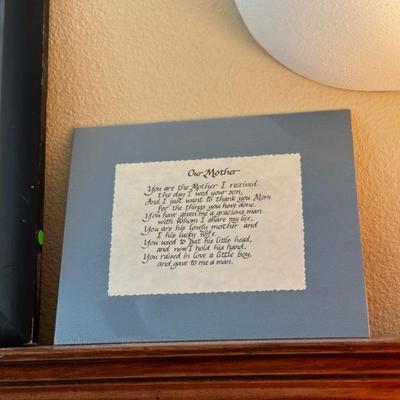 Our Mother
You are the Mother I received
the day I wed your son,
And I just want to thank you Mom
for the things you have done.
You have given me a gracious man
with whom I share my life,
You are his lovely mother and
I his lucky wife.
You used to pat his little head,
and now I hold his hand.
You raised in love a little boy,
and gave to me a man.